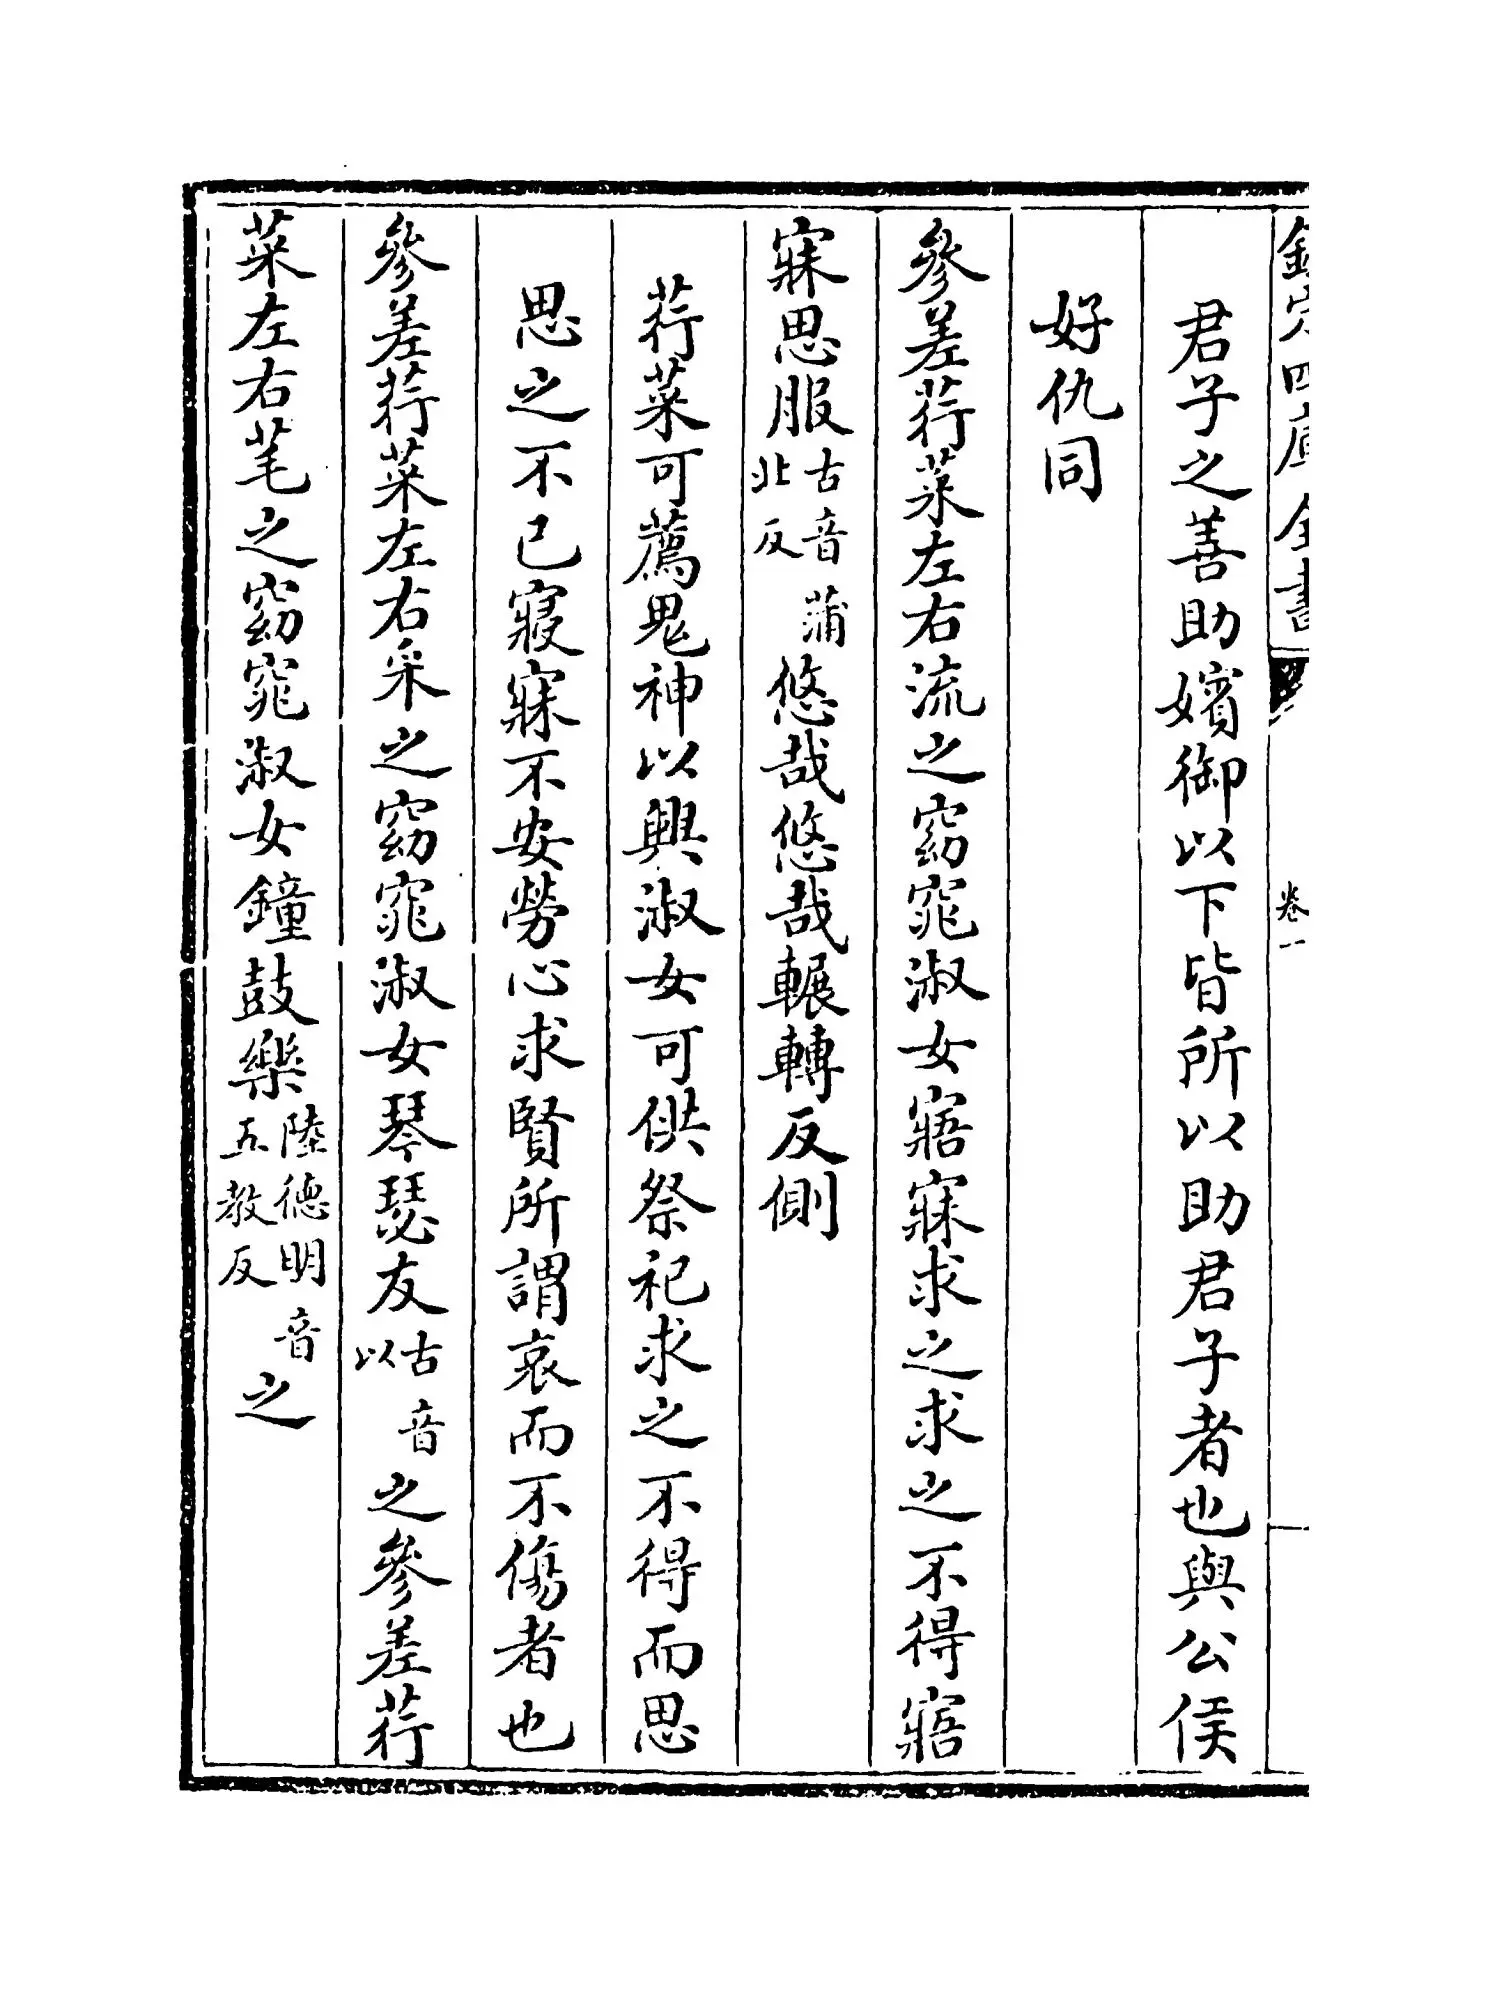 欽定四庫全書
卷一
君子之善助嬪御以下皆所以助君子者也與公侯
好仇同
參差荇菜左右流之窈窕淑女寤寐求之求之不得寤
寐思服古音蒲北反悠哉悠哉輾轉反側
荇菜可薦鬼神以興淑女可供祭祀求之不得而思
思之不已寢寐不安勞心求賢所謂哀而不傷者也
參差荇菜左右采之窈窕淑女琴瑟友古音以之參差荇
菜左右芼之窈窕淑女鐘鼓樂陸德明音五教反之